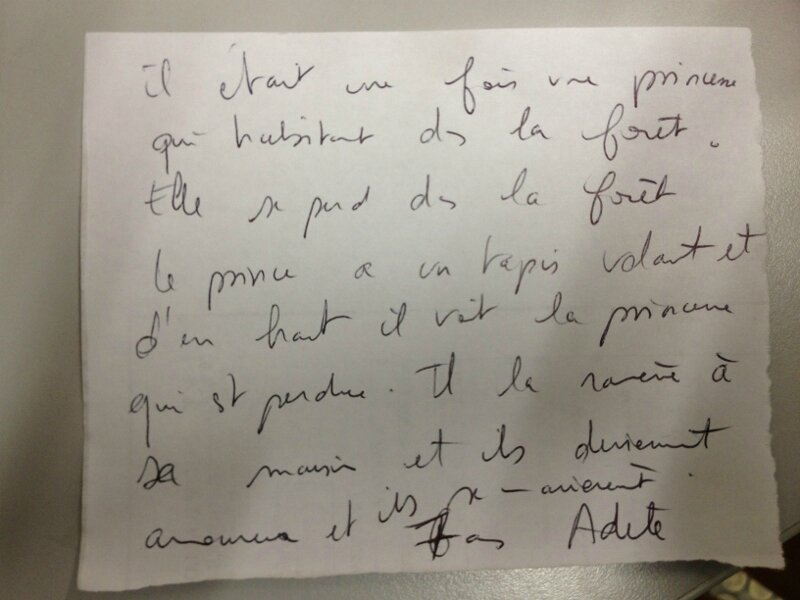 il était une fois une princesse
qui habitait ds la forêt.
Elle se perd ds la forêt
le prince a un tapis volant et
d'en haut il voit la princesse
qui est perdue. Il la ramène à
sa maison et ils deviennent
amoureux et ils se marièrent.
Adete